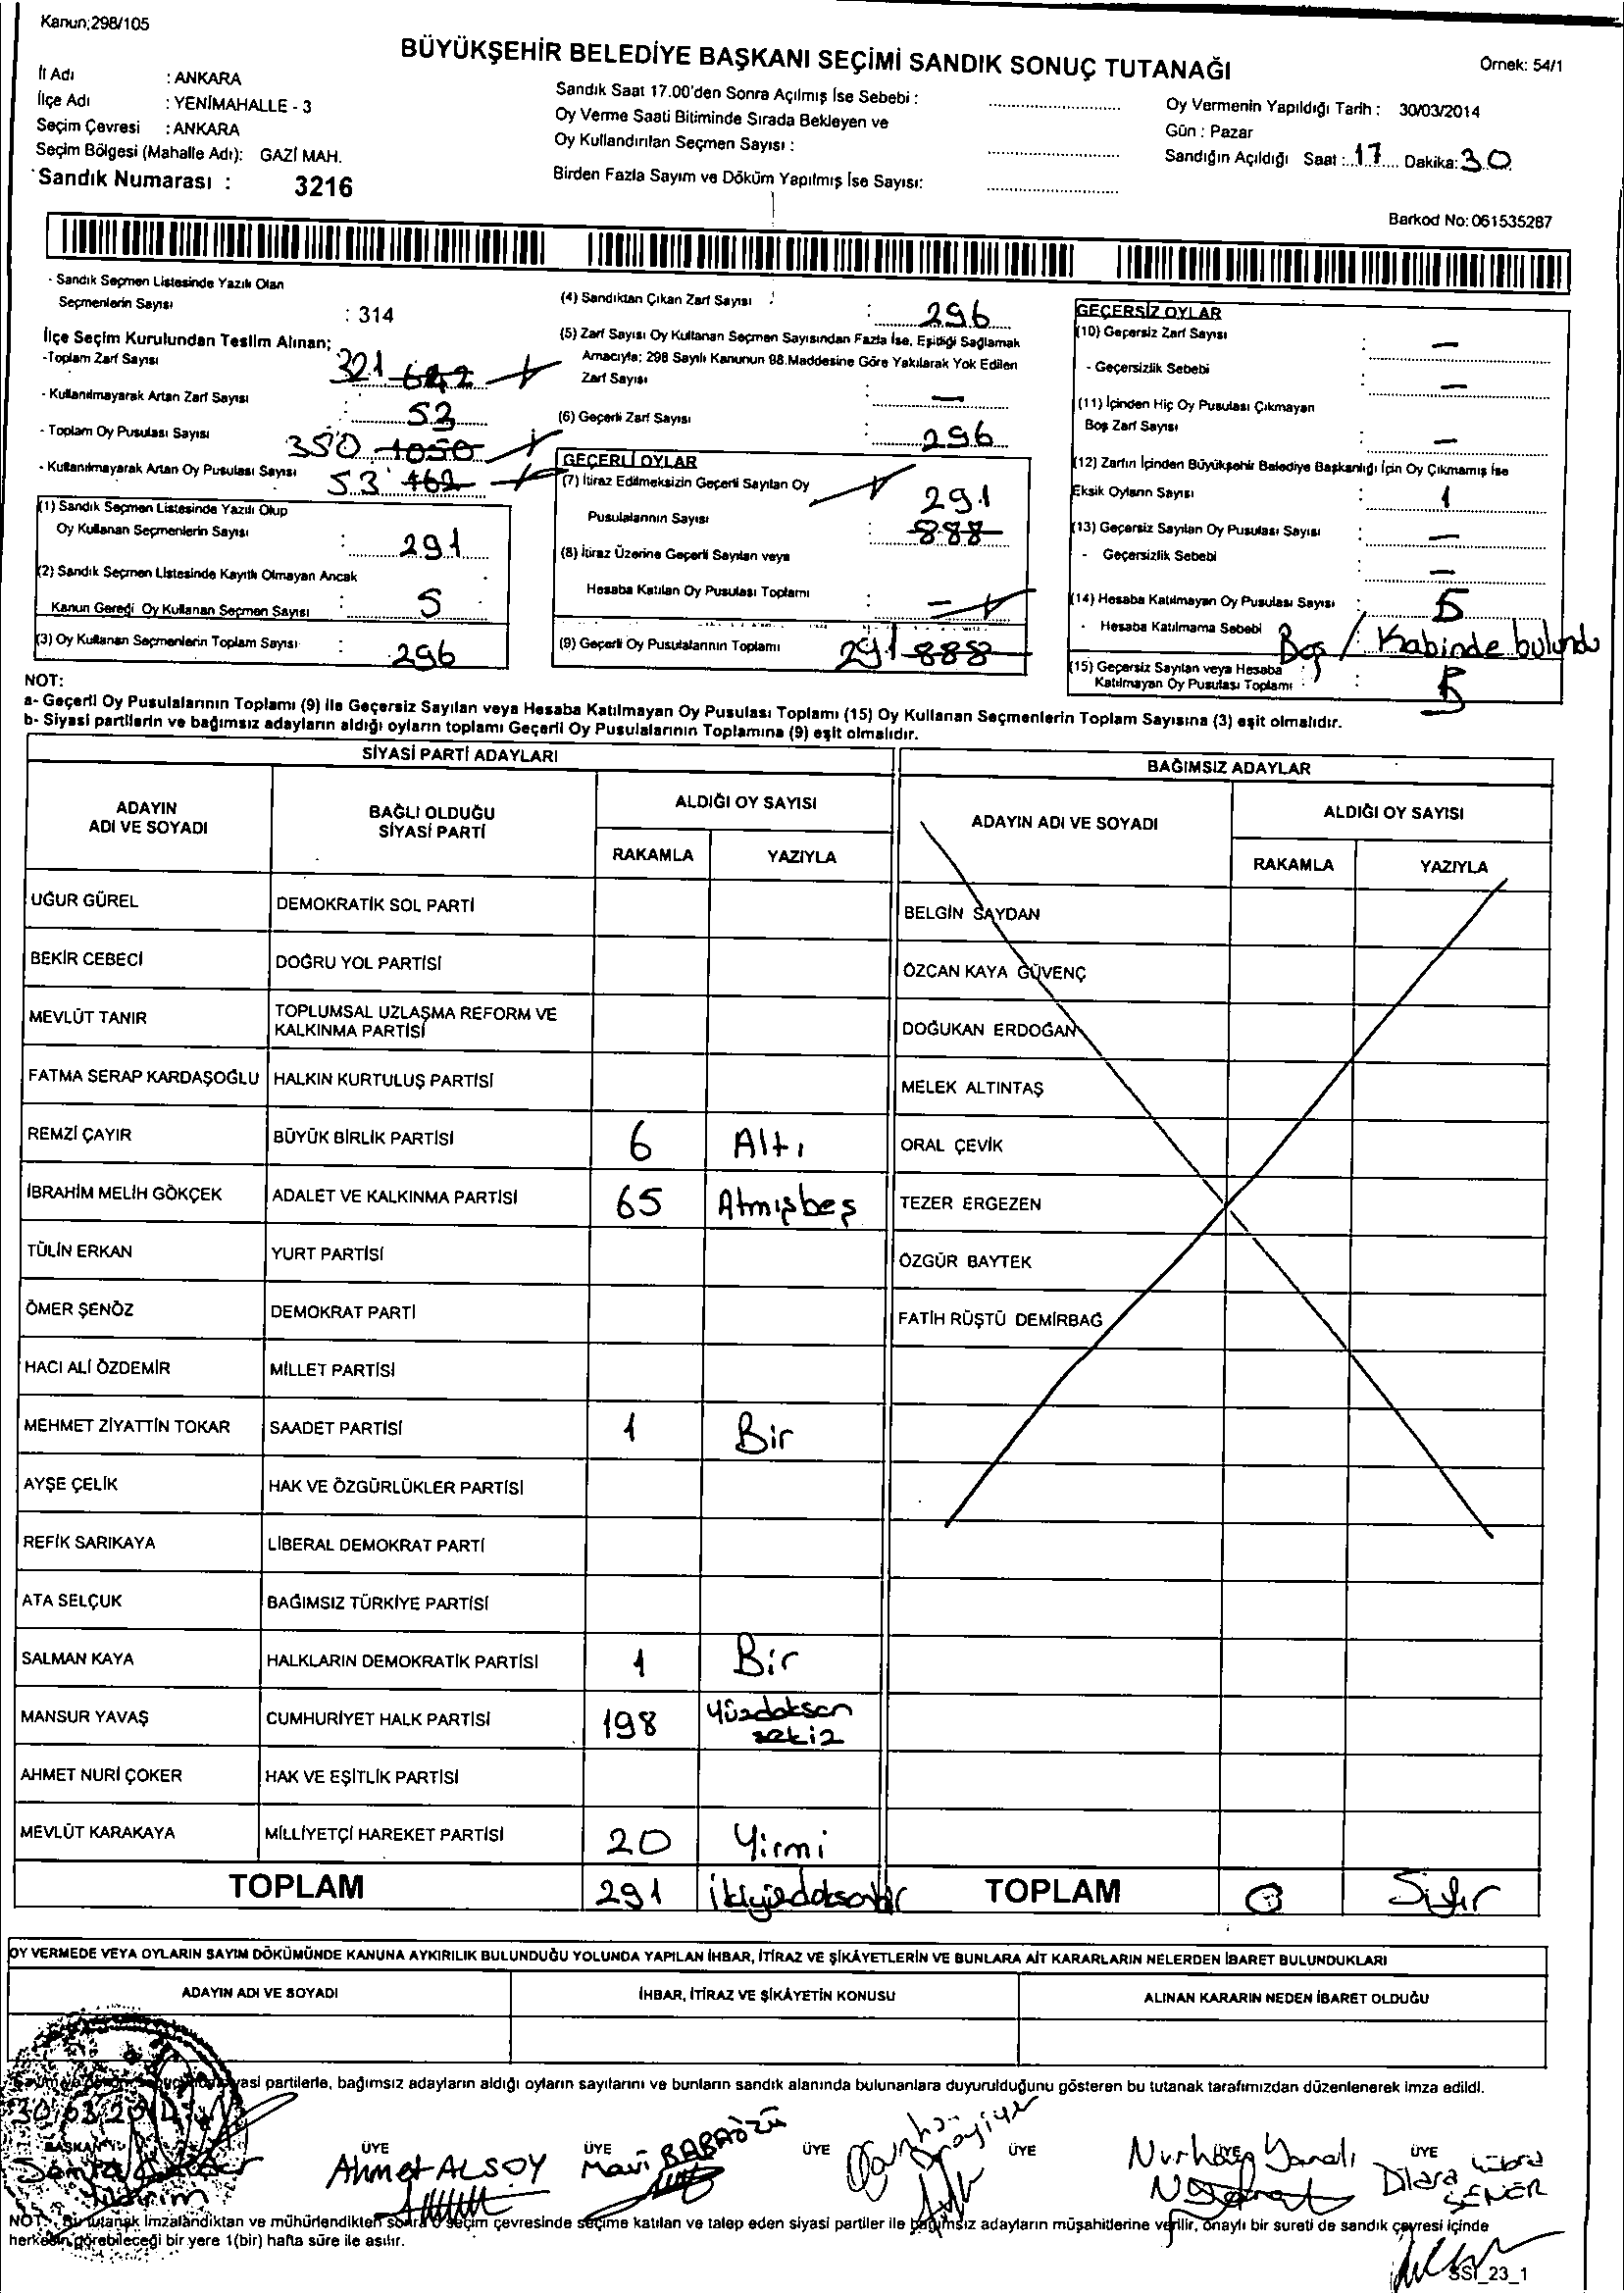 Kanun;298/105
BÜYÜKŞEHİR BELEDİYE BAŞKANI SEÇİMİ SANDIK SONUÇ TUTANAĞI
Örnek: 54/1
İl Adı : ANKARA
İlçe Adı : YENİMAHALLE - 3
Seçim Çevresi : ANKARA
Seçim Bölgesi (Mahalle Adı): GAZİ MAH.
Sandık Numarası : 3216
Sandık Saat 17.00'den Sonra Açılmış İse Sebebi :
Oy Verme Saati Bitiminde Sırada Bekleyen ve
Oy Kullandırılan Seçmen Sayısı :
Birden Fazla Sayım ve Döküm Yapılmış İse Sayısı:
Oy Vermenin Yapıldığı Tarih : 30/03/2014
Gün : Pazar
Sandığın Açıldığı Saat : 17 Dakika: 30
Barkod No: 061535287
- Sandık Seçmen Listesinde Yazılı Olan
Seçmenlerin Sayısı : 314
İlçe Seçim Kurulundan Teslim Alınan;
-Toplam Zarf Sayısı 321 642
- Kullanılmayarak Artan Zarf Sayısı : 53
- Toplam Oy Pusulası Sayısı 350 1050
- Kullanılmayarak Artan Oy Pusulası Sayısı 53 162
(1) Sandık Seçmen Listesinde Yazılı Olup
Oy Kullanan Seçmenlerin Sayısı : 291
(2) Sandık Seçmen Listesinde Kayıtlı Olmayan Ancak
Kanun Gereği Oy Kullanan Seçmen Sayısı : 5
(3) Oy Kullanan Seçmenlerin Toplam Sayısı : 296
(4) Sandıktan Çıkan Zarf Sayısı : 296
(5) Zarf Sayısı Oy Kullanan Seçmen Sayısından Fazla İse, Eşitliği Sağlamak
Amacıyla; 298 Sayılı Kanunun 98.Maddesine Göre Yakılarak Yok Edilen
Zarf Sayısı : —
(6) Geçerli Zarf Sayısı : 296
GEÇERLİ OYLAR
(7) İtiraz Edilmeksizin Geçerli Sayılan Oy
Pusulalarının Sayısı : 291 888
(8) İtiraz Üzerine Geçerli Sayılan veya
Hesaba Katılan Oy Pusulası Toplamı : —
(9) Geçerli Oy Pusulalarının Toplamı : 291 888
GEÇERSİZ OYLAR
(10) Geçersiz Zarf Sayısı : —
- Geçersizlik Sebebi : —
(11) İçinden Hiç Oy Pusulası Çıkmayan
Boş Zarf Sayısı : —
(12) Zarfın İçinden Büyükşehir Belediye Başkanlığı İçin Oy Çıkmamış İse
Eksik Oyların Sayısı : 1
(13) Geçersiz Sayılan Oy Pusulası Sayısı : —
- Geçersizlik Sebebi : —
(14) Hesaba Katılmayan Oy Pusulası Sayısı : 5
- Hesaba Katılmama Sebebi Boş / Kabinde bulundu
(15) Geçersiz Sayılan veya Hesaba
Katılmayan Oy Pusulası Toplamı : 5
NOT:
a- Geçerli Oy Pusulalarının Toplamı (9) ile Geçersiz Sayılan veya Hesaba Katılmayan Oy Pusulası Toplamı (15) Oy Kullanan Seçmenlerin Toplam Sayısına (3) eşit olmalıdır.
b- Siyasi partilerin ve bağımsız adayların aldığı oyların toplamı Geçerli Oy Pusulalarının Toplamına (9) eşit olmalıdır.
SİYASİ PARTİ ADAYLARI
ADAYIN ADI VE SOYADI
BAĞLI OLDUĞU SİYASİ PARTİ
ALDIĞI OY SAYISI
RAKAMLA YAZIYLA
UĞUR GÜREL DEMOKRATİK SOL PARTİ
BEKİR CEBECİ DOĞRU YOL PARTİSİ
MEVLÜT TANIR TOPLUMSAL UZLAŞMA REFORM VE KALKINMA PARTİSİ
FATMA SERAP KARDAŞOĞLU HALKIN KURTULUŞ PARTİSİ
REMZİ ÇAYIR BÜYÜK BİRLİK PARTİSİ 6 Altı
İBRAHİM MELİH GÖKÇEK ADALET VE KALKINMA PARTİSİ 65 Atmışbeş
TÜLİN ERKAN YURT PARTİSİ
ÖMER ŞENÖZ DEMOKRAT PARTİ
HACI ALİ ÖZDEMİR MİLLET PARTİSİ
MEHMET ZİYATTİN TOKAR SAADET PARTİSİ 1 Bir
AYŞE ÇELİK HAK VE ÖZGÜRLÜKLER PARTİSİ
REFİK SARIKAYA LİBERAL DEMOKRAT PARTİ
ATA SELÇUK BAĞIMSIZ TÜRKİYE PARTİSİ
SALMAN KAYA HALKLARIN DEMOKRATİK PARTİSİ 1 Bir
MANSUR YAVAŞ CUMHURİYET HALK PARTİSİ 198 Yüzdoksan sekiz
AHMET NURİ ÇOKER HAK VE EŞİTLİK PARTİSİ
MEVLÜT KARAKAYA MİLLİYETÇİ HAREKET PARTİSİ 20 Yirmi
TOPLAM 291 İkiyüzdoksanbir
BAĞIMSIZ ADAYLAR
ADAYIN ADI VE SOYADI
ALDIĞI OY SAYISI
RAKAMLA YAZIYLA
BELGİN SAYDAN
ÖZCAN KAYA GÜVENÇ
DOĞUKAN ERDOĞAN
MELEK ALTINTAŞ
ORAL ÇEVİK
TEZER ERGEZEN
ÖZGÜR BAYTEK
FATİH RÜŞTÜ DEMİRBAĞ
TOPLAM 0 Sıfır
OY VERMEDE VEYA OYLARIN SAYIM DÖKÜMÜNDE KANUNA AYKIRILIK BULUNDUĞU YOLUNDA YAPILAN İHBAR, İTİRAZ VE ŞİKÂYETLERİN VE BUNLARA AİT KARARLARIN NELERDEN İBARET BULUNDUKLARI
ADAYIN ADI VE SOYADI
İHBAR, İTİRAZ VE ŞİKÂYETİN KONUSU
ALINAN KARARIN NEDEN İBARET OLDUĞU
siyasi partilerle, bağımsız adayların aldığı oyların sayılarını ve bunların sandık alanında bulunanlara duyurulduğunu gösteren bu tutanak tarafımızdan düzenlenerek imza edildi.
30/03/2014
BAŞKAN ÜYE ÜYE ÜYE ÜYE ÜYE ÜYE
Yıldırım
Ahmet ALSOY
Mavi BABAÖZÜ
Nurhan Yanalı
Dilara Kübra ŞENER
NOT: Bu tutanak imzalandıktan ve mühürlendikten sonra o seçim çevresinde seçime katılan ve talep eden siyasi partiler ile bağımsız adayların müşahitlerine verilir, onaylı bir sureti de sandık çevresi içinde
herkesin görebileceği bir yere 1(bir) hafta süre ile asılır.
SSI_23_1